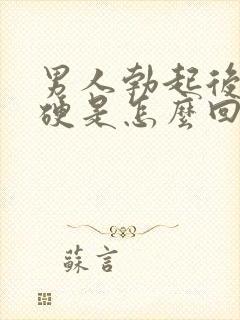 男人勃起後
硬是怎麼回
蘇言